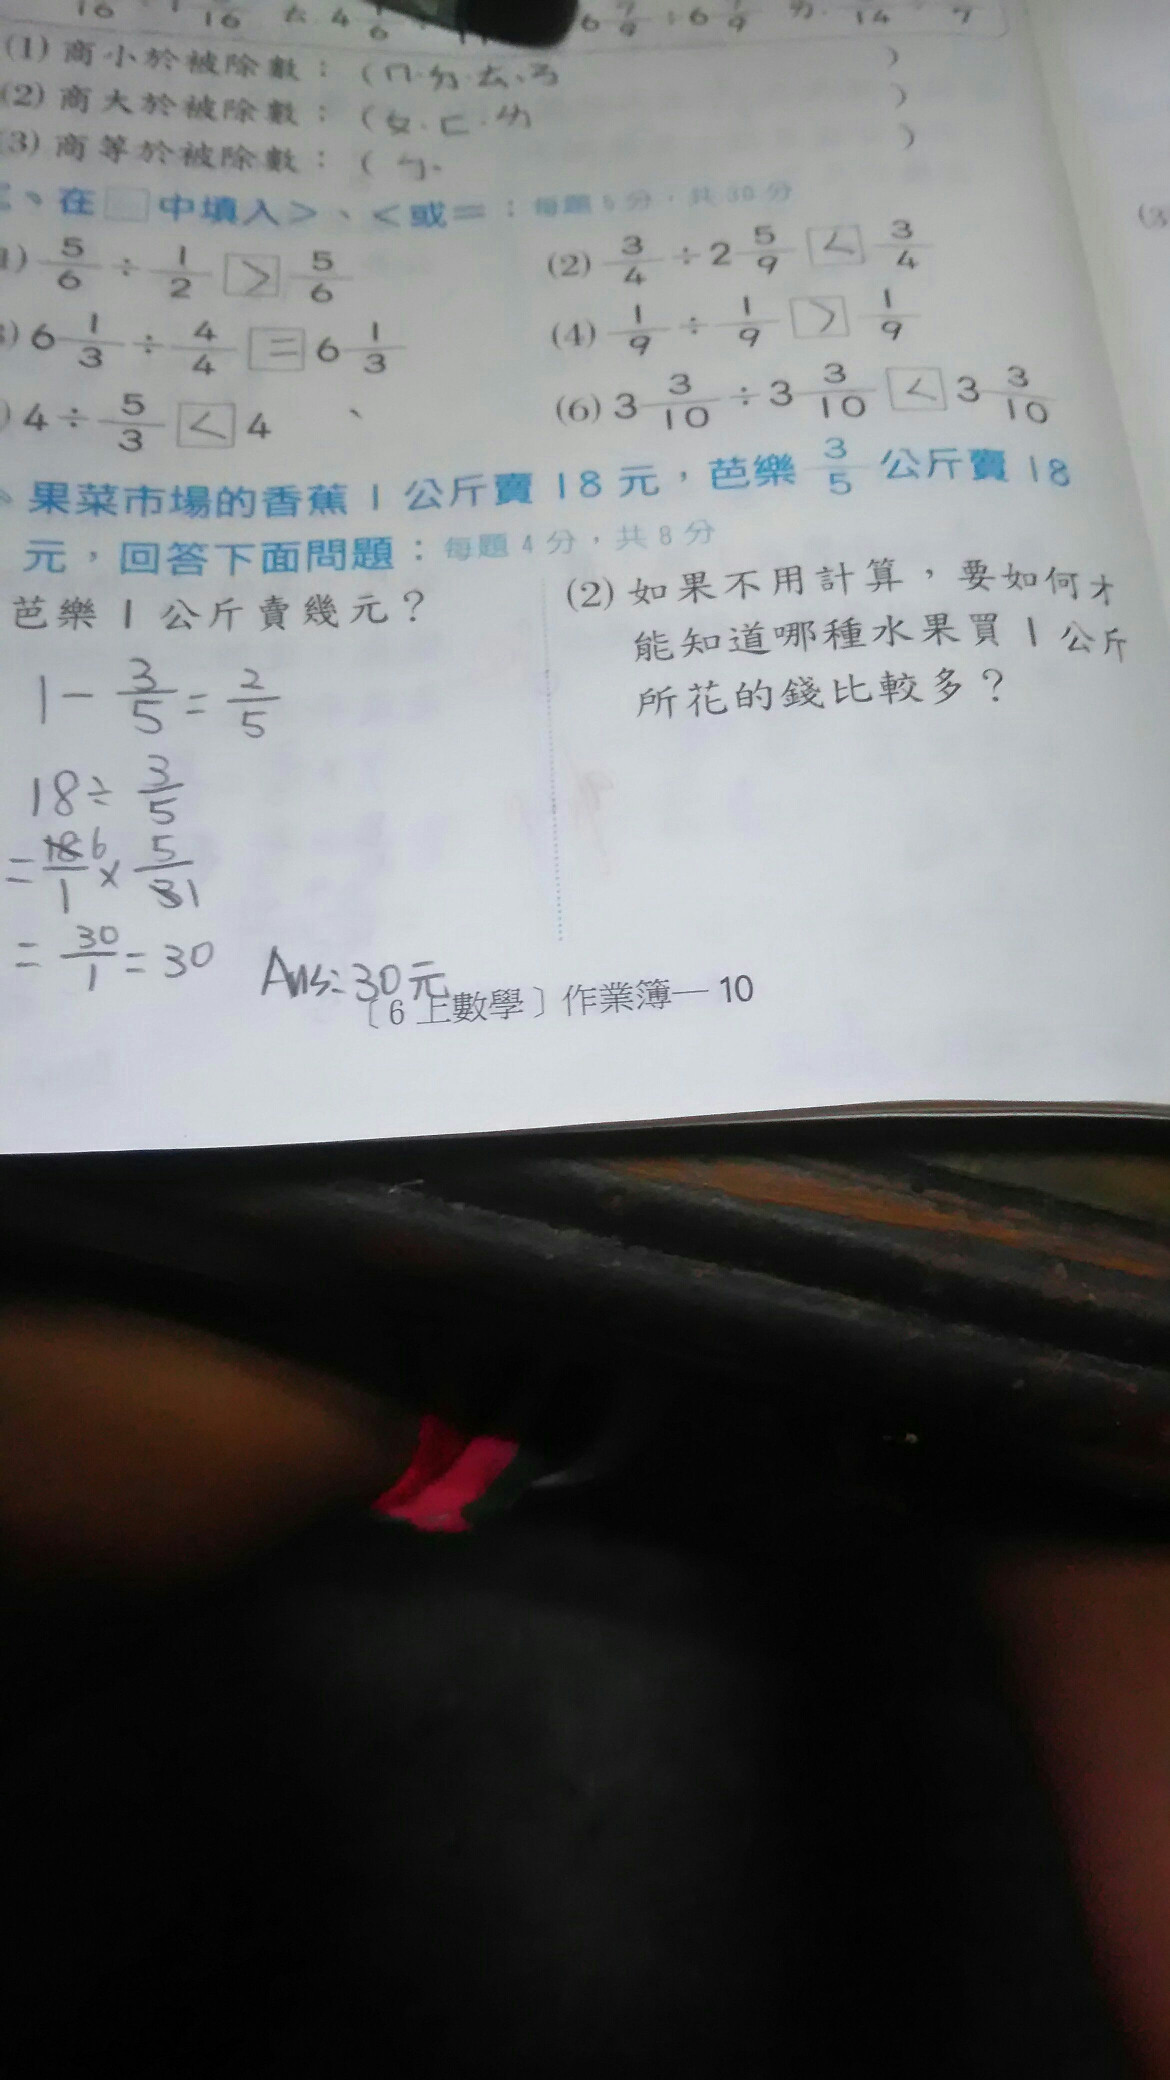 (1) 商小於被除數：(ㄇ.ㄉ.ㄊ、ㄋ )
(2) 商大於被除數：(ㄆ.ㄈ.ㄌ )
(3) 商等於被除數：(ㄅ. )
、在□中填入＞、＜或＝：每題5分，共30分
5/6 ÷ 1/2 > 5/6
(2) 3/4 ÷ 2 5/9 < 3/4
6 1/3 ÷ 4/4 = 6 1/3
(4) 1/9 ÷ 1/9 > 1/9
4 ÷ 5/3 < 4
(6) 3 3/10 ÷ 3 3/10 < 3 3/10
果菜市場的香蕉1公斤賣18元，芭樂 3/5 公斤賣18
元，回答下面問題：每題4分，共8分
芭樂1公斤賣幾元？
1 - 3/5 = 2/5
18 ÷ 3/5
= 18 6/1 × 5/3 1
= 30/1 = 30 Ans: 30元
(2) 如果不用計算，要如何才
能知道哪種水果買1公斤
所花的錢比較多？
〔6上數學〕作業簿—10